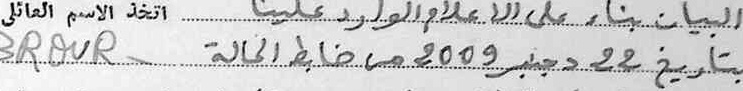 البيان بناء على الاعلام الوارد علينا اتخذ الاسم العائلي
بتاريخ 22 دجنبر 2009 من ضابط الحالة BROUR